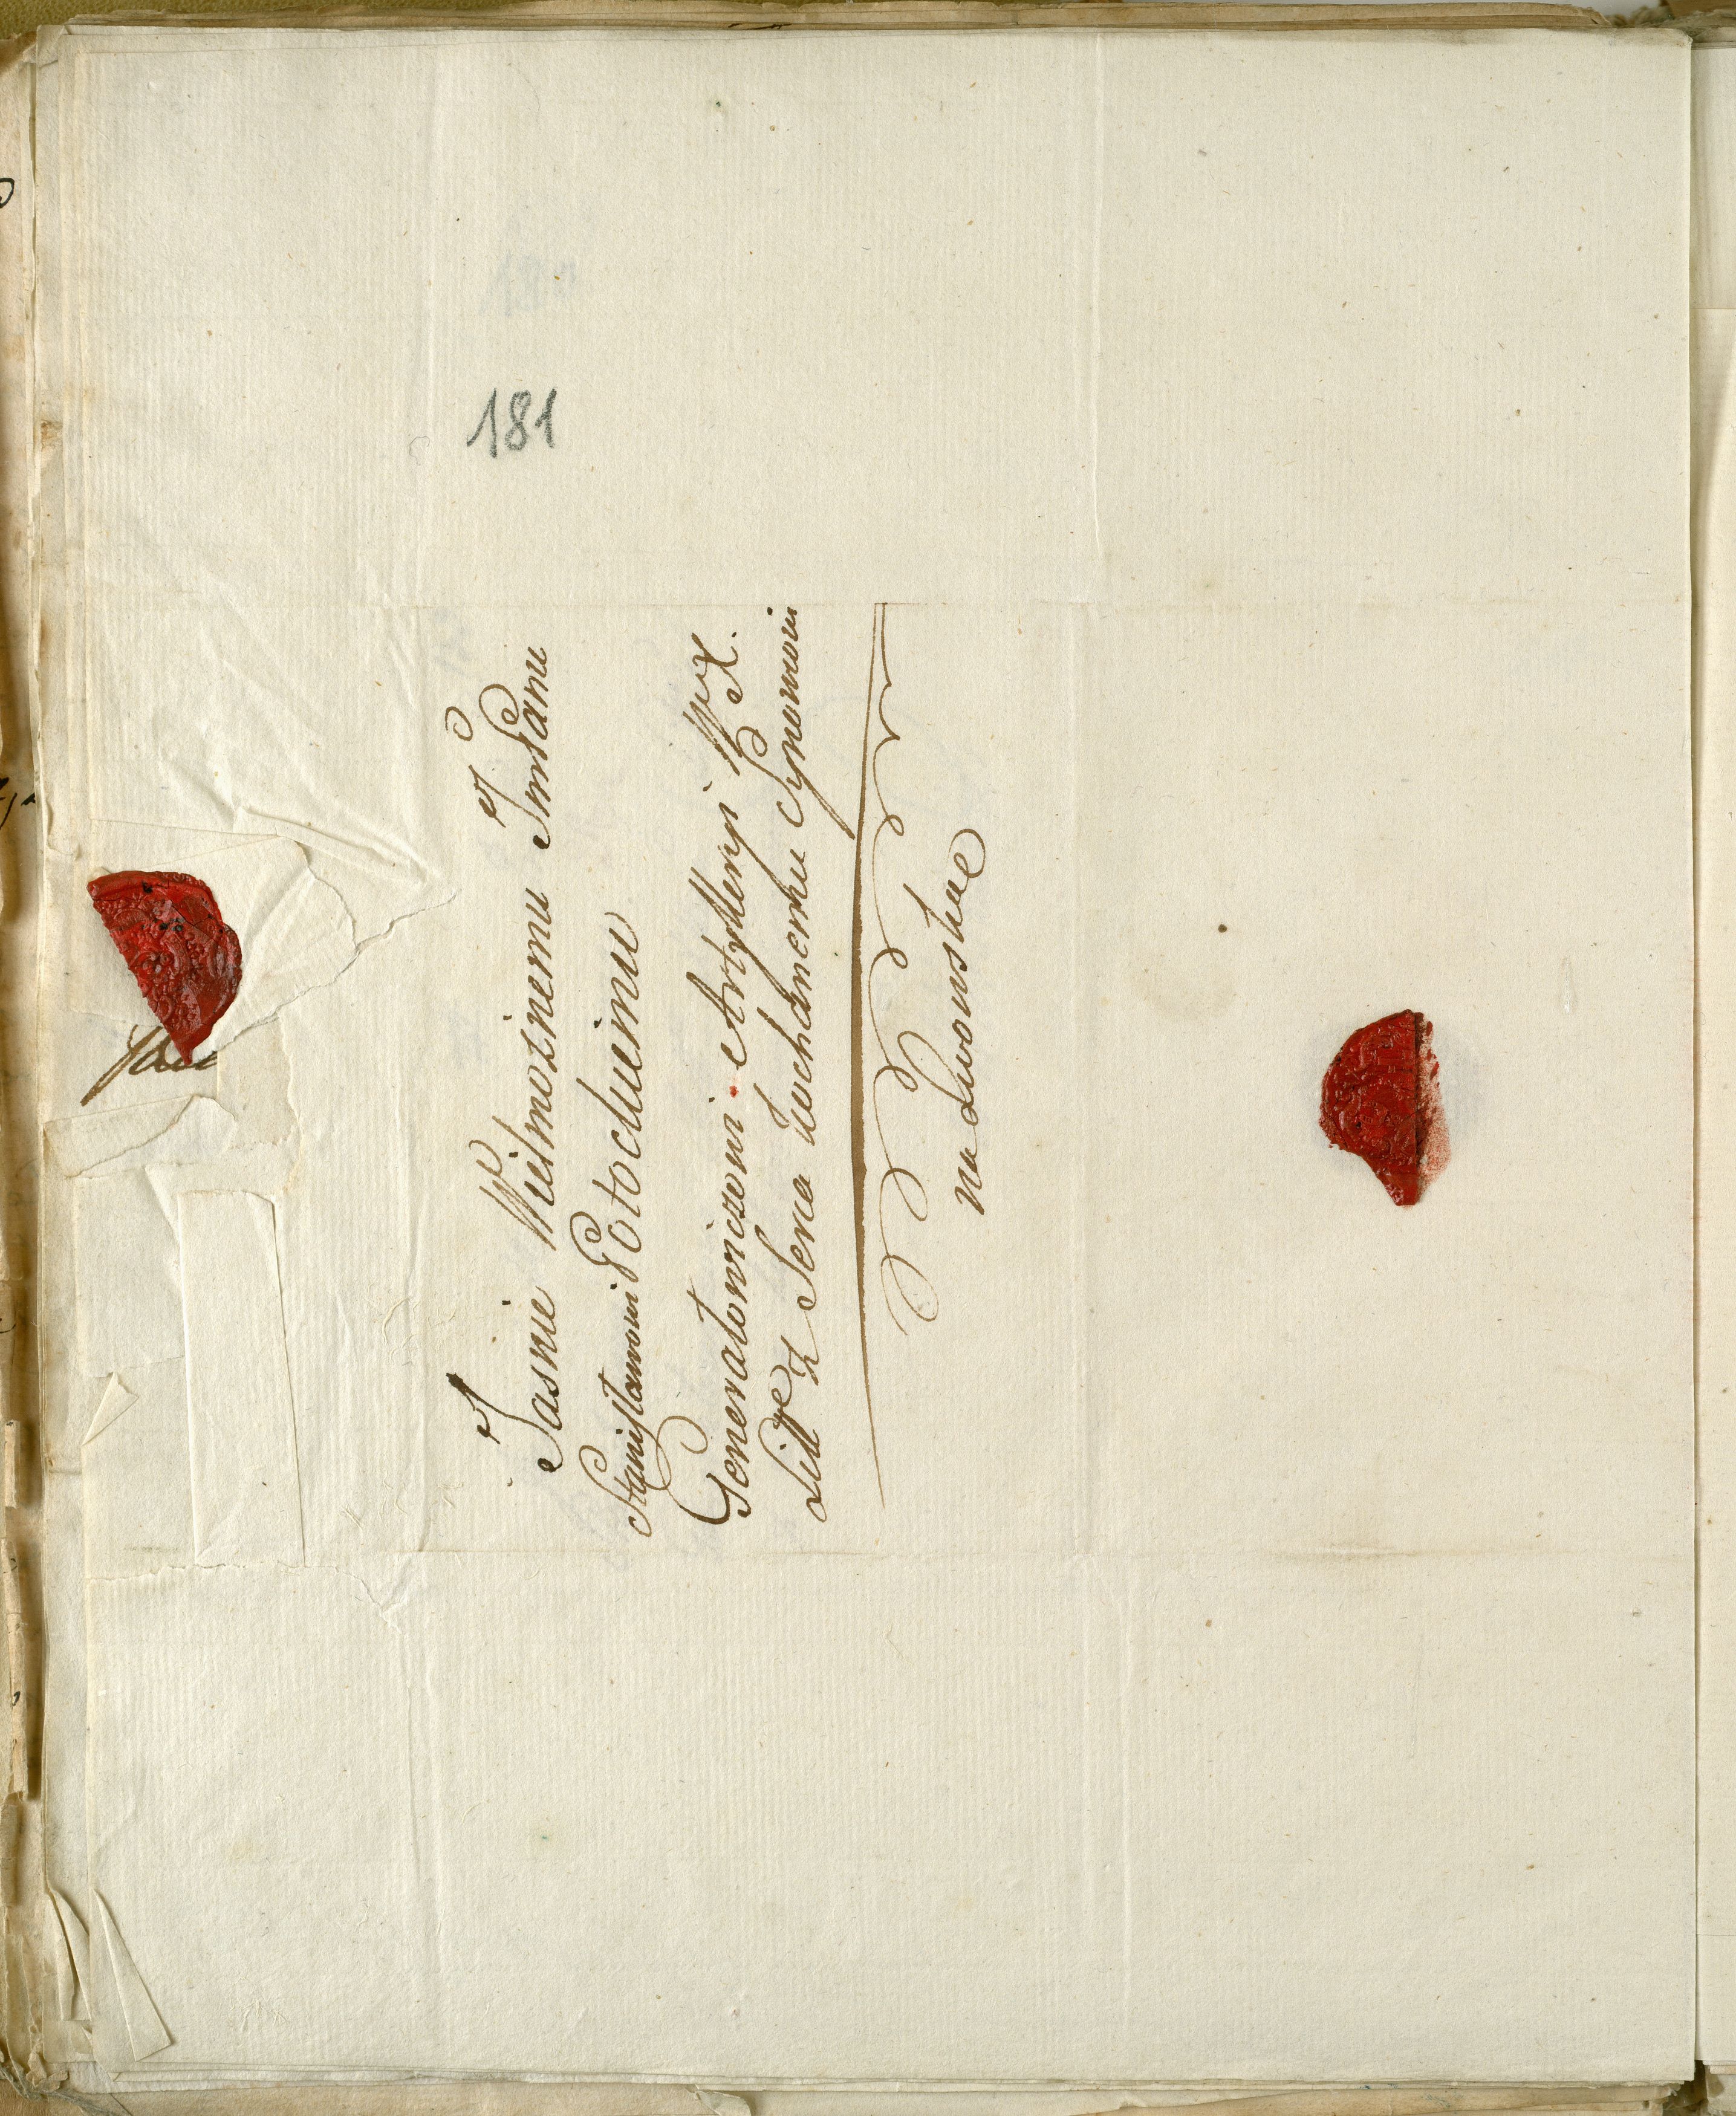 181
Jasnie Wielmoznemu ImPanu
Stanisławowi Potockiemu
Generałowiczowi Artylleryi W. X.
Litt. z Serca kochanemu Synowi
na Lwowskie